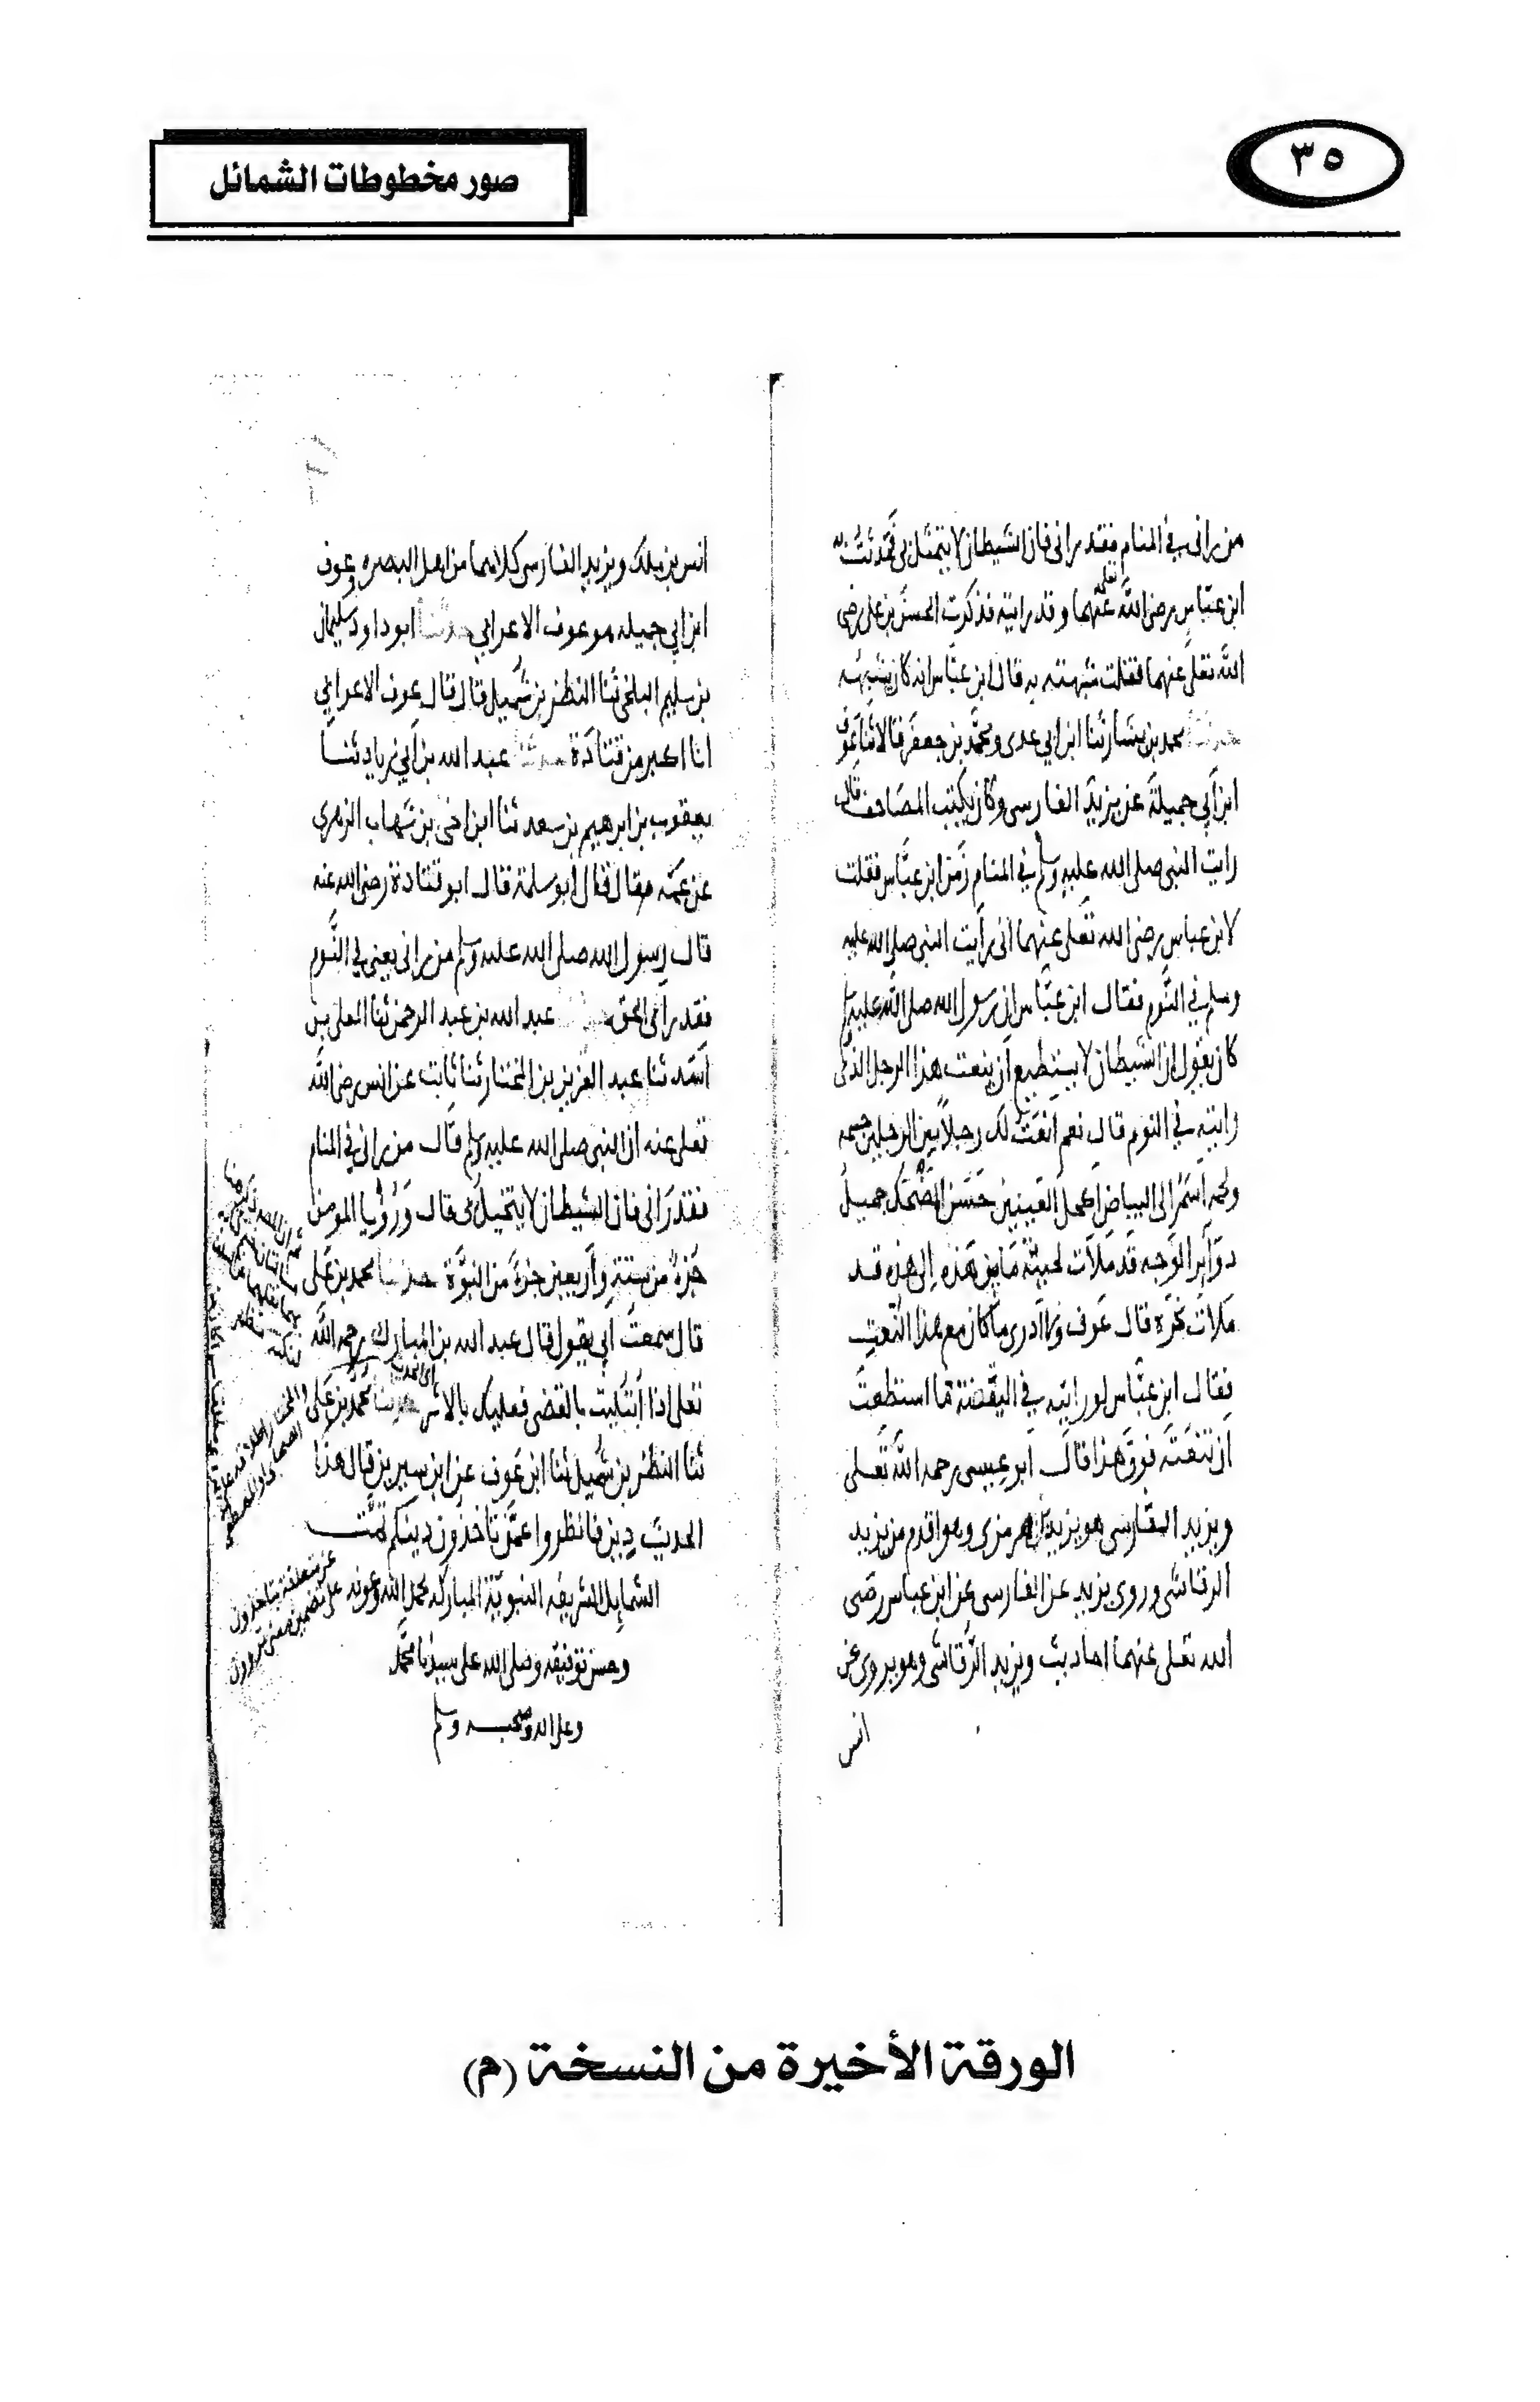 ٣٥
صور مخطوطات الشمائل
من رانى في المنام فقد رانى فان الشيطان لا يتمثل بى فحدثت به
ابن عباس رضى الله تعلى عنهما وقد رايته فذكرت الحسن بن على رضى
الله تعلى عنهما فقلت شبهته به قال ابن عباس انه كان يشبهه
حدثنا محمد بن بشار ثنا ابن ابي عدى ومحمد بن جعفر قالا ثنا عوف
ابن ابي جميلة عن يزيد الفارسى وكان يكتب المصاحف قال
رايت النبي صلى الله عليه وسلم في المنام زمن ابن عباس فقلت
لابن عباس رضى الله تعلى عنهما انى رأيت النبي صلى الله عليه
وسلم في النوم فقال ابن عباس ان رسول الله صلى الله عليه وسلم
كان يقول ان الشيطان لا يستطيع ان ينعت هذا الرجل الذى
رايته في النوم قال نعم انعت لك رجلا بين الرجلين جسمه
ولحمه اسمر الى البياض اكحل العينين حسن الضحك جميل
دوآبر الوجه قد ملات لحيته ما بين هذه الى هذه قد
ملات نحره قال عوف ولا ادرى ما كان مع هذا النعت
فقال ابن عباس لو رايته في اليقضة ما استطعت
ان تنعته فوق هذا قال ابو عيسى رحمه الله تعلى
ويزيد الفارسى هو يزيد بن هرمزى وهو اقدم من يزيد
الرقاشى وروى يزيد عن الفارسى عن ابن عباس رضى
الله تعلى عنهما احاديث ويزيد الرقاشى وهو يروى عن
انس
انس بن ملك ويزيد الفارسى كلاهما من اهل البصره وعوف
ابن ابي جميله هو عوف الاعرابي حدثنا ابو داود سليمان
بن سليم البلخى ثنا النظر بن شميل قال قال عوف الاعرابي
انا اكبر من قتادة حدثنا عبد الله بن ابي زياد ثنا
يعقوب بن ابرهيم بن سعد ثنا ابن اخى بن شهاب الزهري
عن عمه فقال قال ابو سلمة قال ابو قتادة رضى الله عنه
قال رسول الله صلى الله عليه وسلم من رانى يعنى في النوم
فقد رانى الحق حدثنا عبد الله بن عبد الرحمن ثنا المعلى بن
اسد ثنا عبد العزيز بن المختار ثنا ثابت عن انس رضى الله
تعلى عنه ان النبي صلى الله عليه وسلم قال من رانى في المنام
فقد رانى فان الشيطان لا يتخيل بى قال ورؤيا المومن
جزء من ستة واربعين جزء من النبوة حدثنا محمد بن على
قال سمعت ابي يقول قال عبد الله بن المبارك رحمه الله
تعلى اذا ابتليت بالقضى فعليك بالاثر حدثنا محمد بن على
ثنا النظر بن شميل ثنا ابن عوف عن ابن سيرين قال هذا
الحديث دين فانظروا عمن تاخذون دينكم تمت
الشمايل الشريفه النبويه المباركه بحمد الله وعونه
وحسن توفيقه وصلى الله على سيدنا محمد
وعلى اله وصحبه وسلم
عن متعلقة بتاخذون
على تضمين معنى تروون
الورقة الأخيرة من النسخة (م)